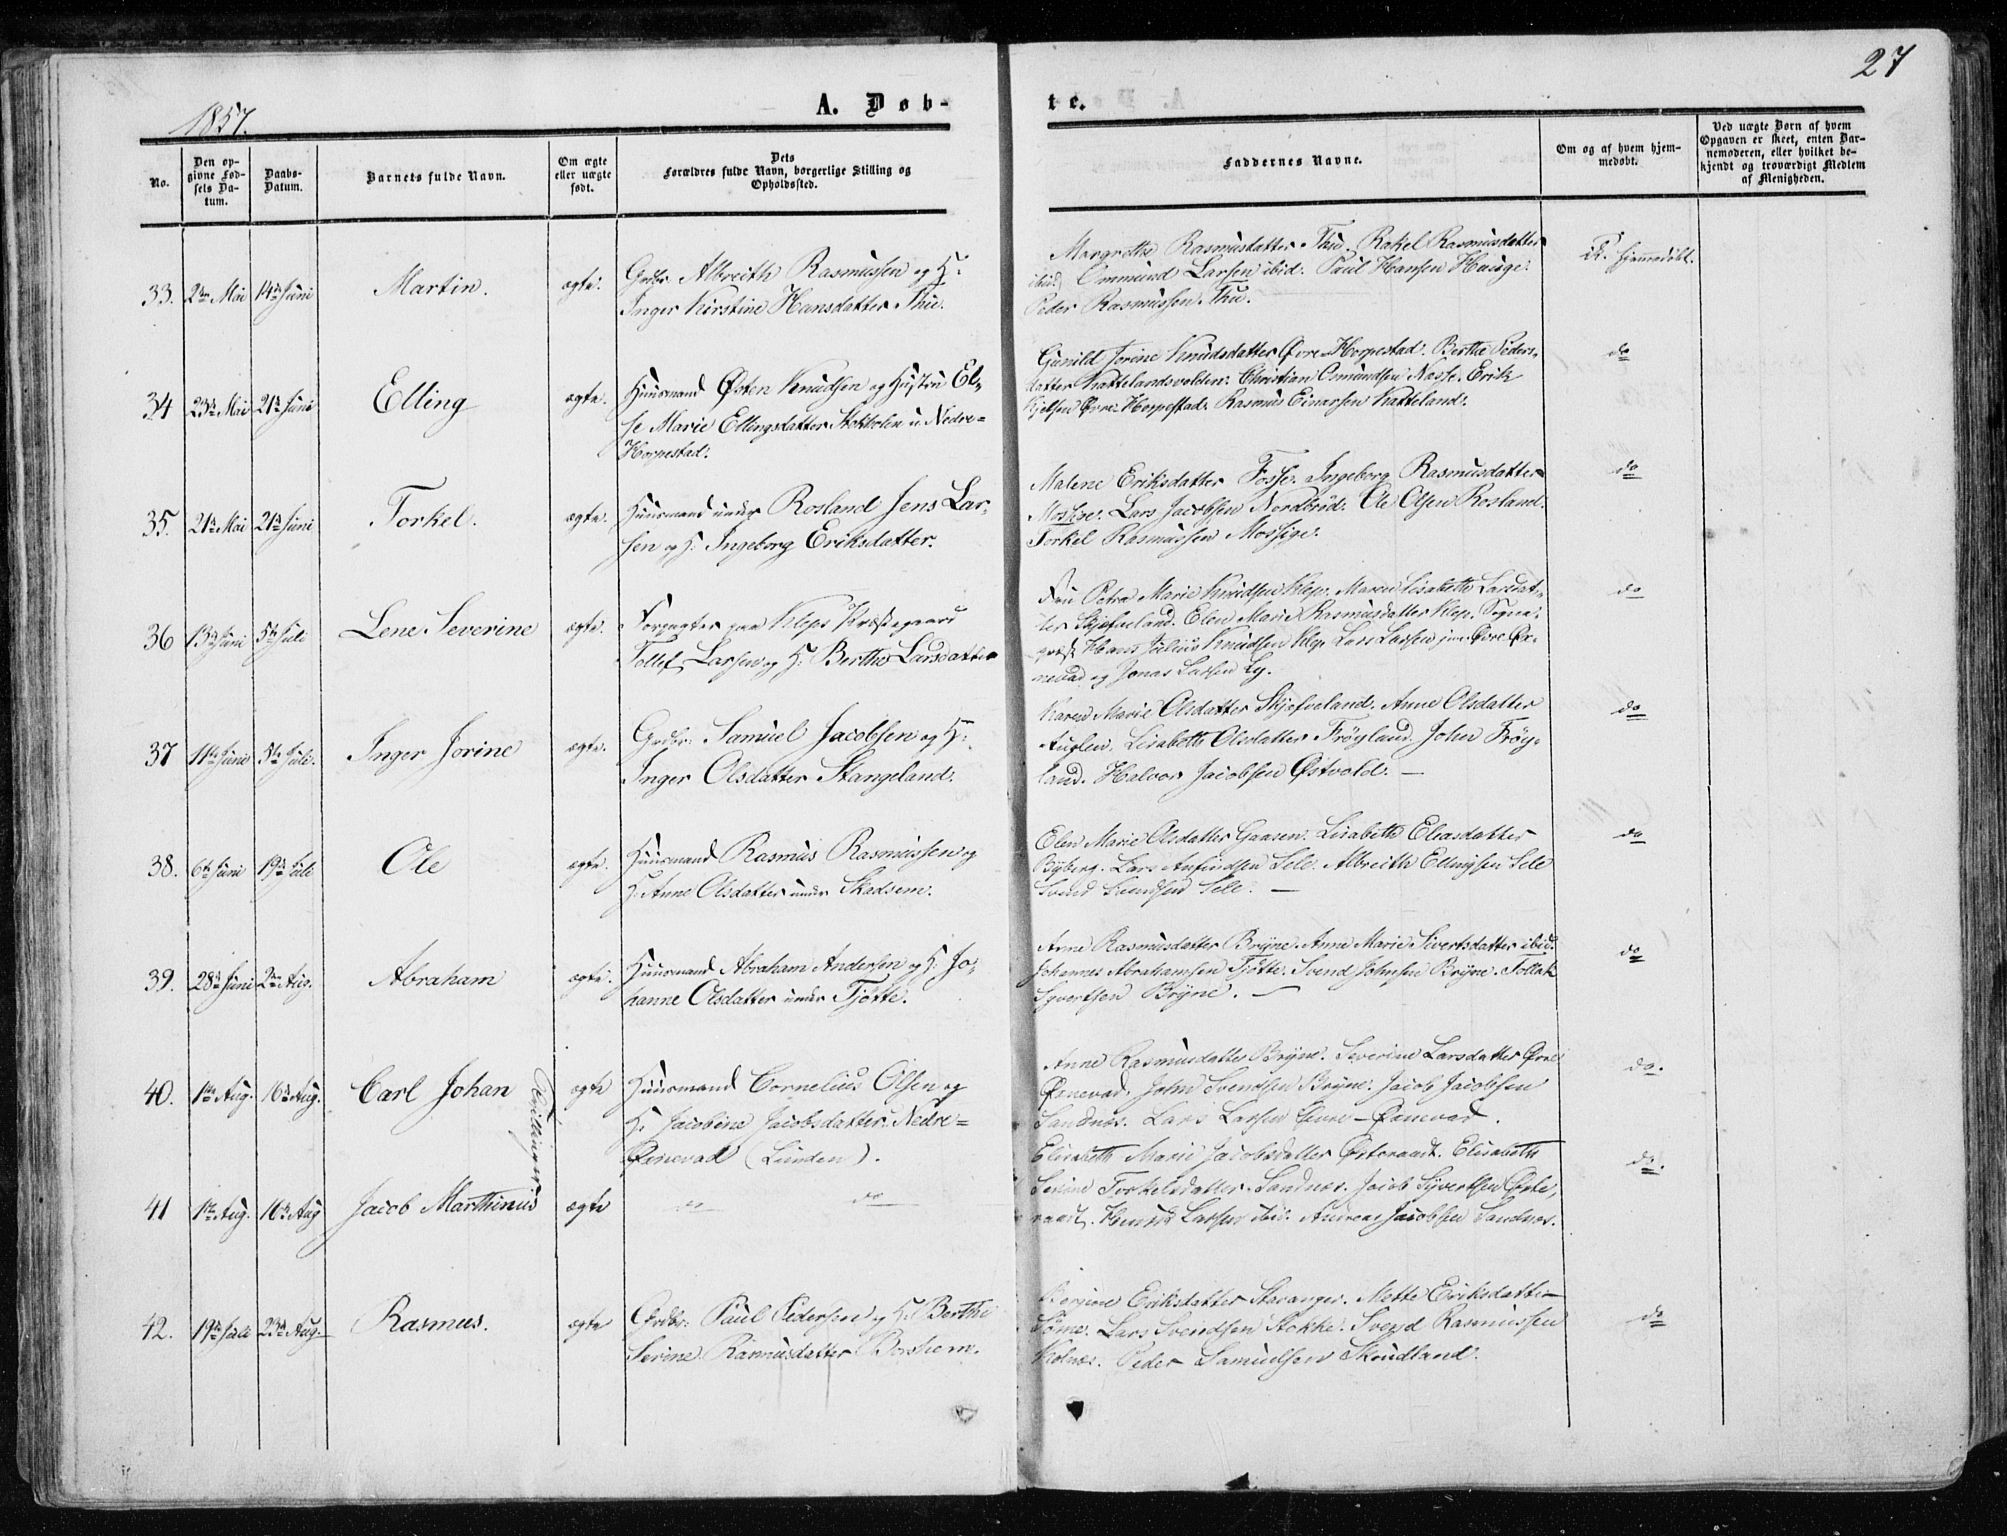 27
1857.
A. Døb-
te.
No.
Den op-
givne Fød-
sels Da-
tum.
Daabs-
Datum.
Barnets fulde Navn.
Om ægte
eller uægte
født.
Dets
Forældres fulde Navn, borgerlige Stilling og
Opholdssted.
Faddernes Navne.
Om og af hvem hjem-
medøbt.
Ved uægte Børn af hvem
Opgaven er skeet, enten Bar-
nemoderen, eller hvilket be-
kjendt og troværdigt Medlem
af Menigheden.
33. 2den Mai 14de Juni Martin. ægte.
Grdbr. Albreth Rasmussen og H:
Inger Kirstine Hansdatter Thu.
Margrethe Rasmusdatter Thu. Rakel Rasmusdatter
ibid. Ommund Larsen ibid. Paul Hansen Hauge.
Peder Rasmussen Thu.
hjemmedøbt.
34 23de Mai 21de Juni Elling ægte.
Huusmand Østen Knudsen og Hustru El-
se Marie Ellingsdatter Stokholen u. Nedre=
Horpestad.
Gunild Jorine Knudsdatter Øvre-Horpestad. Berthe Peders-
datter Kattelandsvolden. Christian Osmundsen Næsse. Erik
Kjelsen Øvre-Horpestad. Rasmus Einarsen Katteland.
do
35. 21de Mai 21de Juni Torkel. ægte.
Huusmand under Rosland Jens Lar-
sen og H: Ingeborg Eriksdatter.
Malene Eriksdatter Fosse. Ingeborg Rasmusdatter
Mossige. Lars Jacobsen Nordbrød. Ole Olsen Rosland.
Torkel Rasmussen Mossige.
do
36 13de Juni 5te Juli Lene Severine ægte.
Forpagter paa Kleps Præstegaard
Tollef Larsen og H: Berthe Larsdatter
Fru Petra Marie Knudsen Klep. Maren Lisabeth Larsdat-
ter Skjefveland. Elen Marie Rasmusdatter Klep. Sogne-
præst Hans Julius Knudsen Klep. Lars Larsen jun. Øvre-Øx-
nevad og Jonas Larsen Ly.
do
37 11te Juni 5te Juli. Inger Jorine ægte.
Grdbr: Samuel Jacobsen og H:
Inger Olsdatter Stangeland.
Karen Marie Olsdatter Skjefveland. Anne Olsdatter
Auglen. Lisabeth Olsdatter Frøyland. John Frøy-
land. Halvor Jacobsen Østvold. —
do
38. 6te Juni 19de Juli Ole ægte.
Huusmand Rasmus Rasmussen og
H: Anne Olsdatter under Skadsem.
Elen Marie Olsdatter Gaasen. Lisabeth Eliasdatter
Byberg. Lars Anfindsen Sele. Albreth Ellingsen Sele
Svend Sele. —
do
39. 28de Juni 2den Aug. Abraham ægte.
Huusmand Abraham Andersen og H: Jo-
hanne Olsdatter under Tjøtte.
Anne Rasmusdatter Bryne. Anne Marie Sivertsdatter ibid.
Johannes Abrahamsen Tjøtte. Svend Johnsen Bryne. Tollak
Syvertsen Bryne. —
do
40. 1ste Aug. 16de Aug. Carl Johan Tvillinger ægte
Huusmand Cornelius Olsen og
H: Jacobine Jacobsdatter. Nedre=
Øxnevad (Lunden).
Anne Rasmusdatter Bryne. Severine Larsdatter Øvre
Øxnevad. John Svendsen Bryne. Jacob Jacobsen
Sandnæs. Lars Larsen Øvre-Øxnevad.
do.
41 1ste Aug. 16de Aug Jacob Marthinus ægte do do
Elisabeth Marie Jacobsdatter Østraadt. Elisabeth
Serine Torkelsdatter Sandnæs. Jacob Syvertsen Øst-
raadt. Larsen ibid. Andreas Jacobsen Sandnæs.
do.
42. 19de Juli 23de Aug. Rasmus. ægte
Grdbr: Paul Pedersen og H: Berthe
Serine Rasmusdatter Borsheim.
Eriksdatter Stavanger. Mette Eriksdatter
Sømme. Lars Svendsen Stokke. Svend Rasmussen
Kolnæs. Peder Samuelsen Skrudland.
do